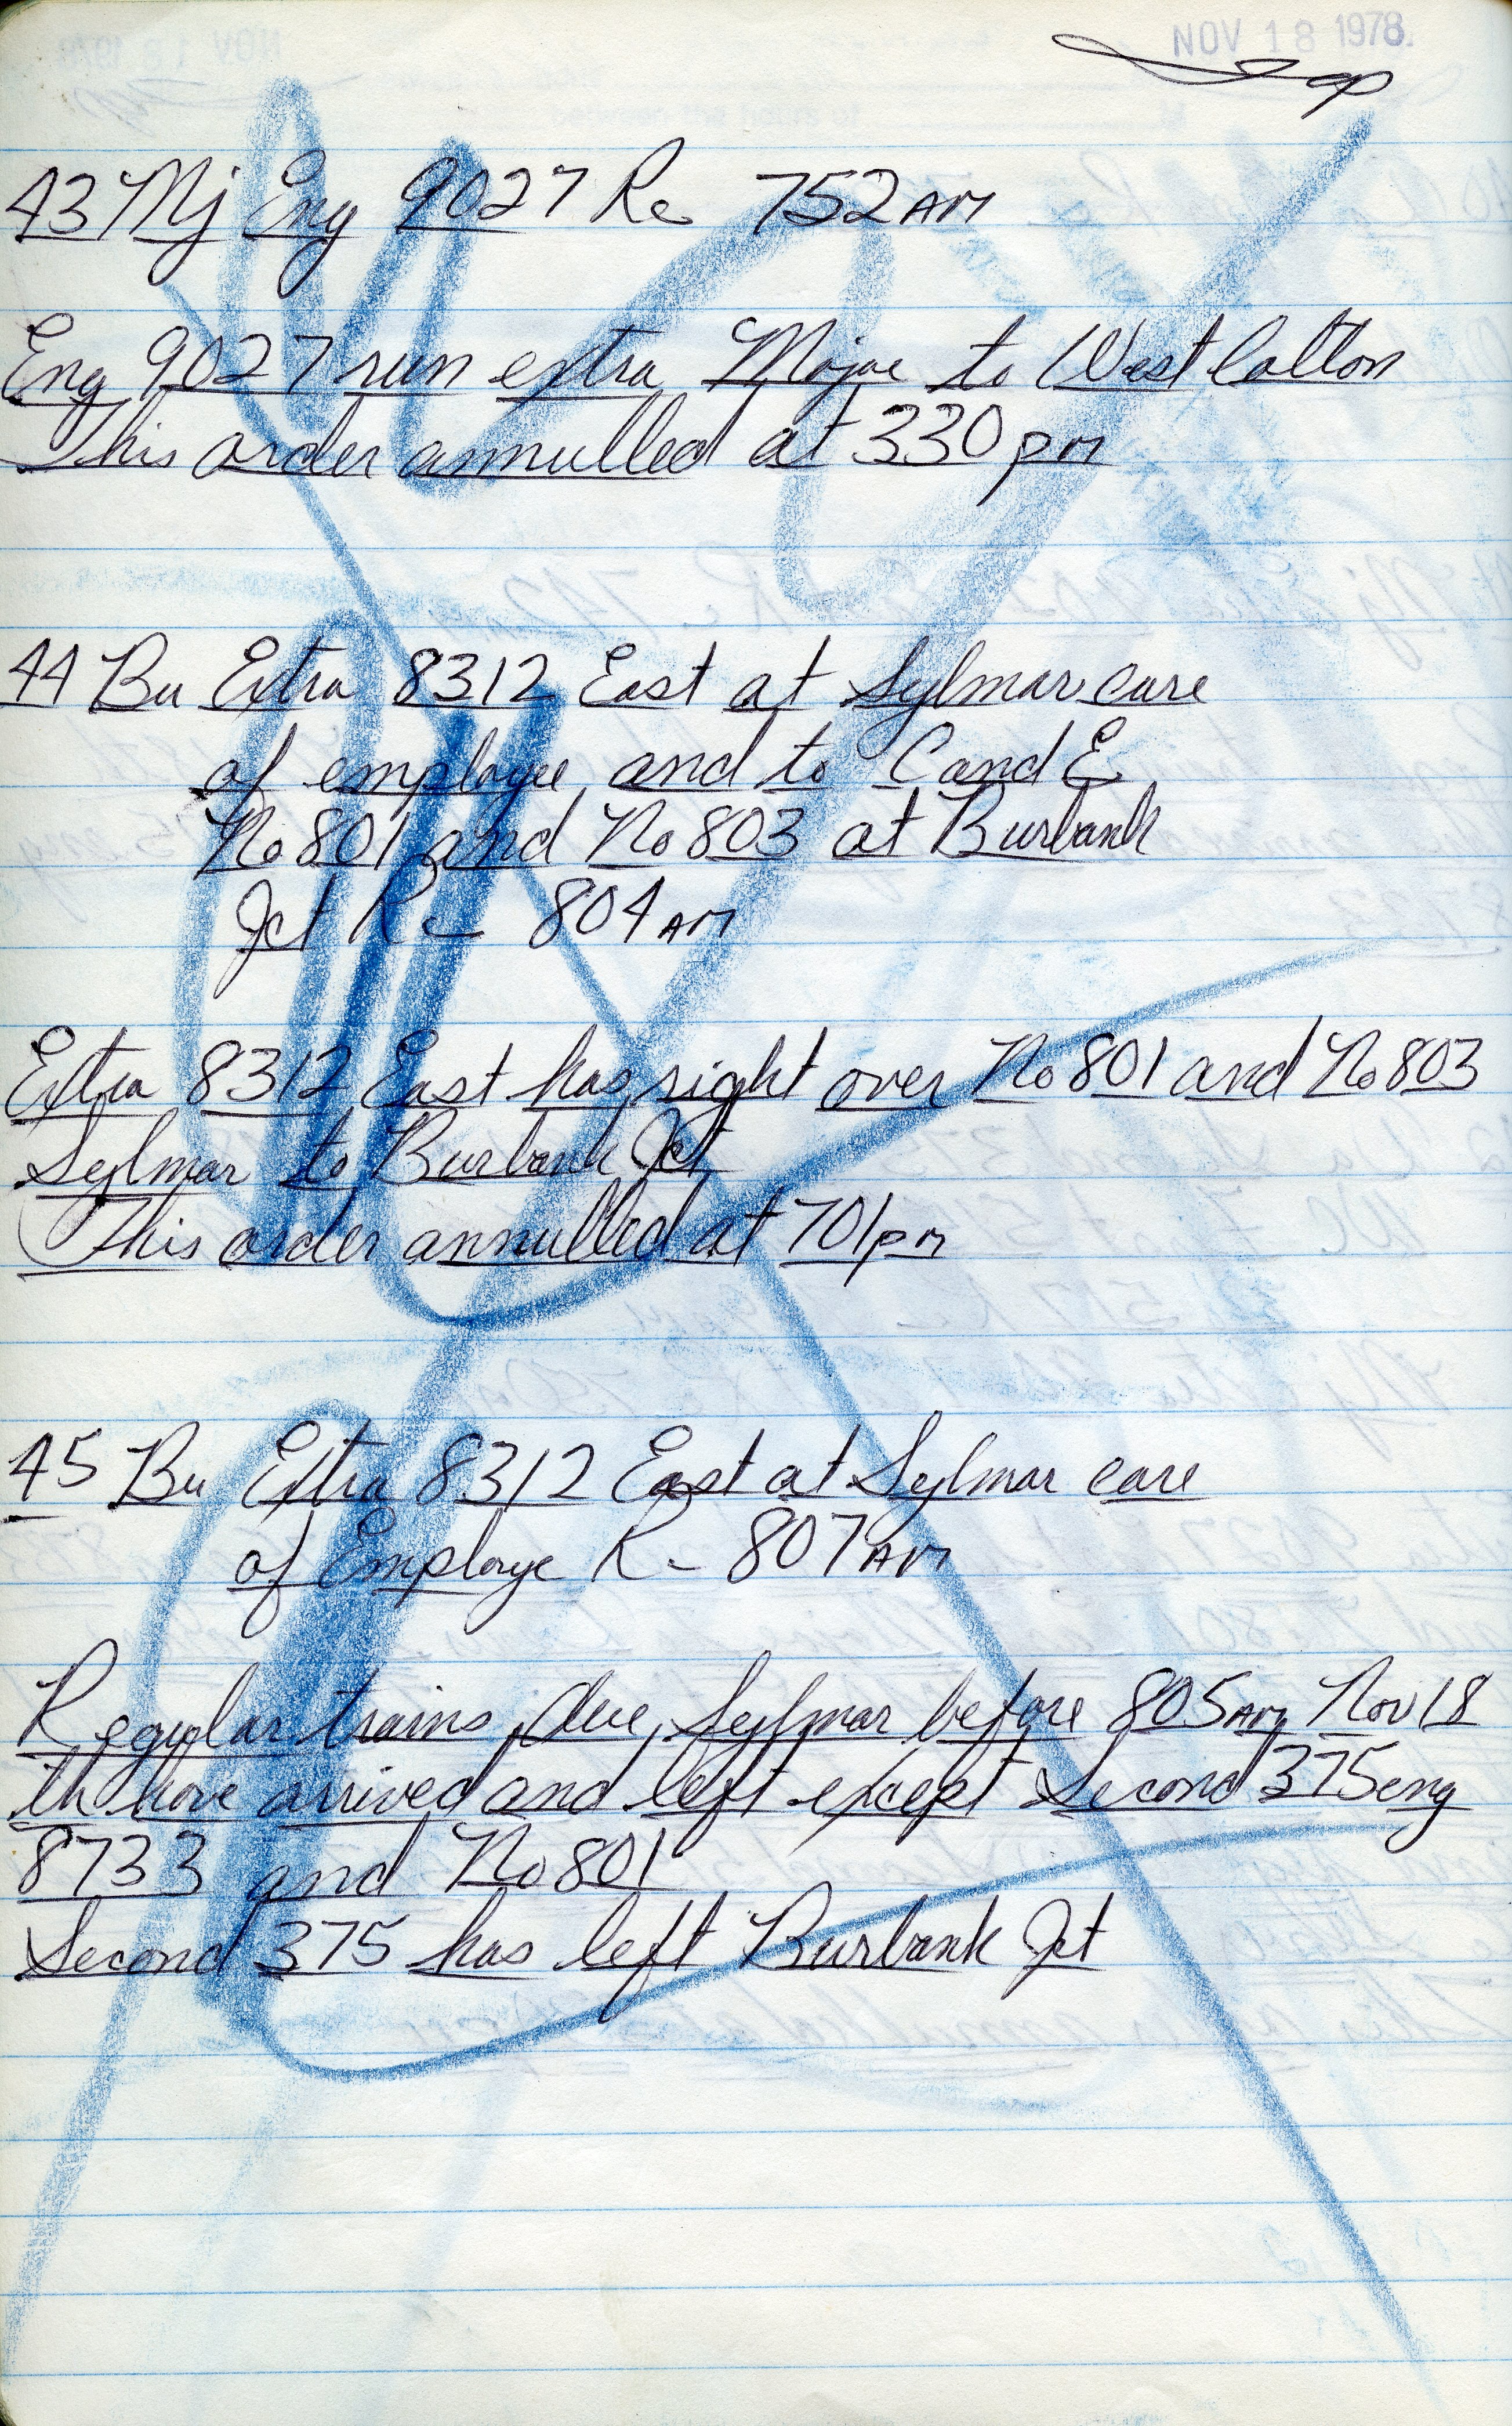 NOV 18 1978.
43 Mj Eng 9027 Re 752 AM
Eng 9027 run extra Mojave to West Colton
This order annulled at 330 pm
44 Bu Extra 8312 East at Sylmar care
of employee and to C and E
No 801 and No 803 at Burbank
Jct Re 804 AM
Extra 8312 East has right over No 801 and No 803
Sylmar to Burbank Jct
This order annulled at 701 pm
45 Bu Extra 8312 East at Sylmar care
of Employe Re 807 AM
Regular trains due Sylmar before 805 AM Nov 18
th have arrived and left except Second 375 eng
8733 and No 801
Second 375 has left Burbank Jct